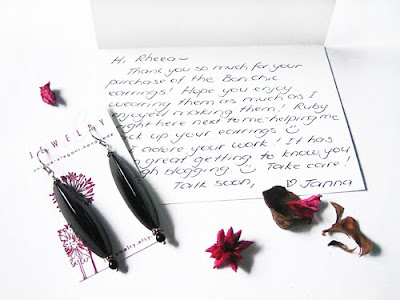 Hi Rheea~
Thank you so much for your
purchase of the Bon chic
earrings! Hope you enjoy
wearing them as much as I
enjoyed making them! Ruby
right here next to me helping me
ck up your earrings ☺
I adore your work! It has
great getting to know you
gh blogging ☺ Take care!
Talk soon,
♡ Janna
JEWELRY
elegant handmade